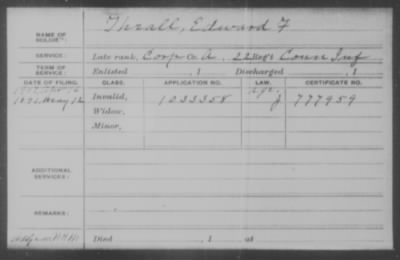 NAME OF SOLDIER: Thrall, Edward F
SERVICE: Late rank, Corp Co A, 22 Regt Conn Inf
TERM OF SERVICE: Enlisted , 1 Discharged , 1
DATE OF FILING. CLASS. APPLICATION NO. LAW. CERTIFICATE NO.
Age.
Invalid, 1233358 J 777959
Widow,
Minor,
ADDITIONAL SERVICES:
REMARKS:
Died , 1 at